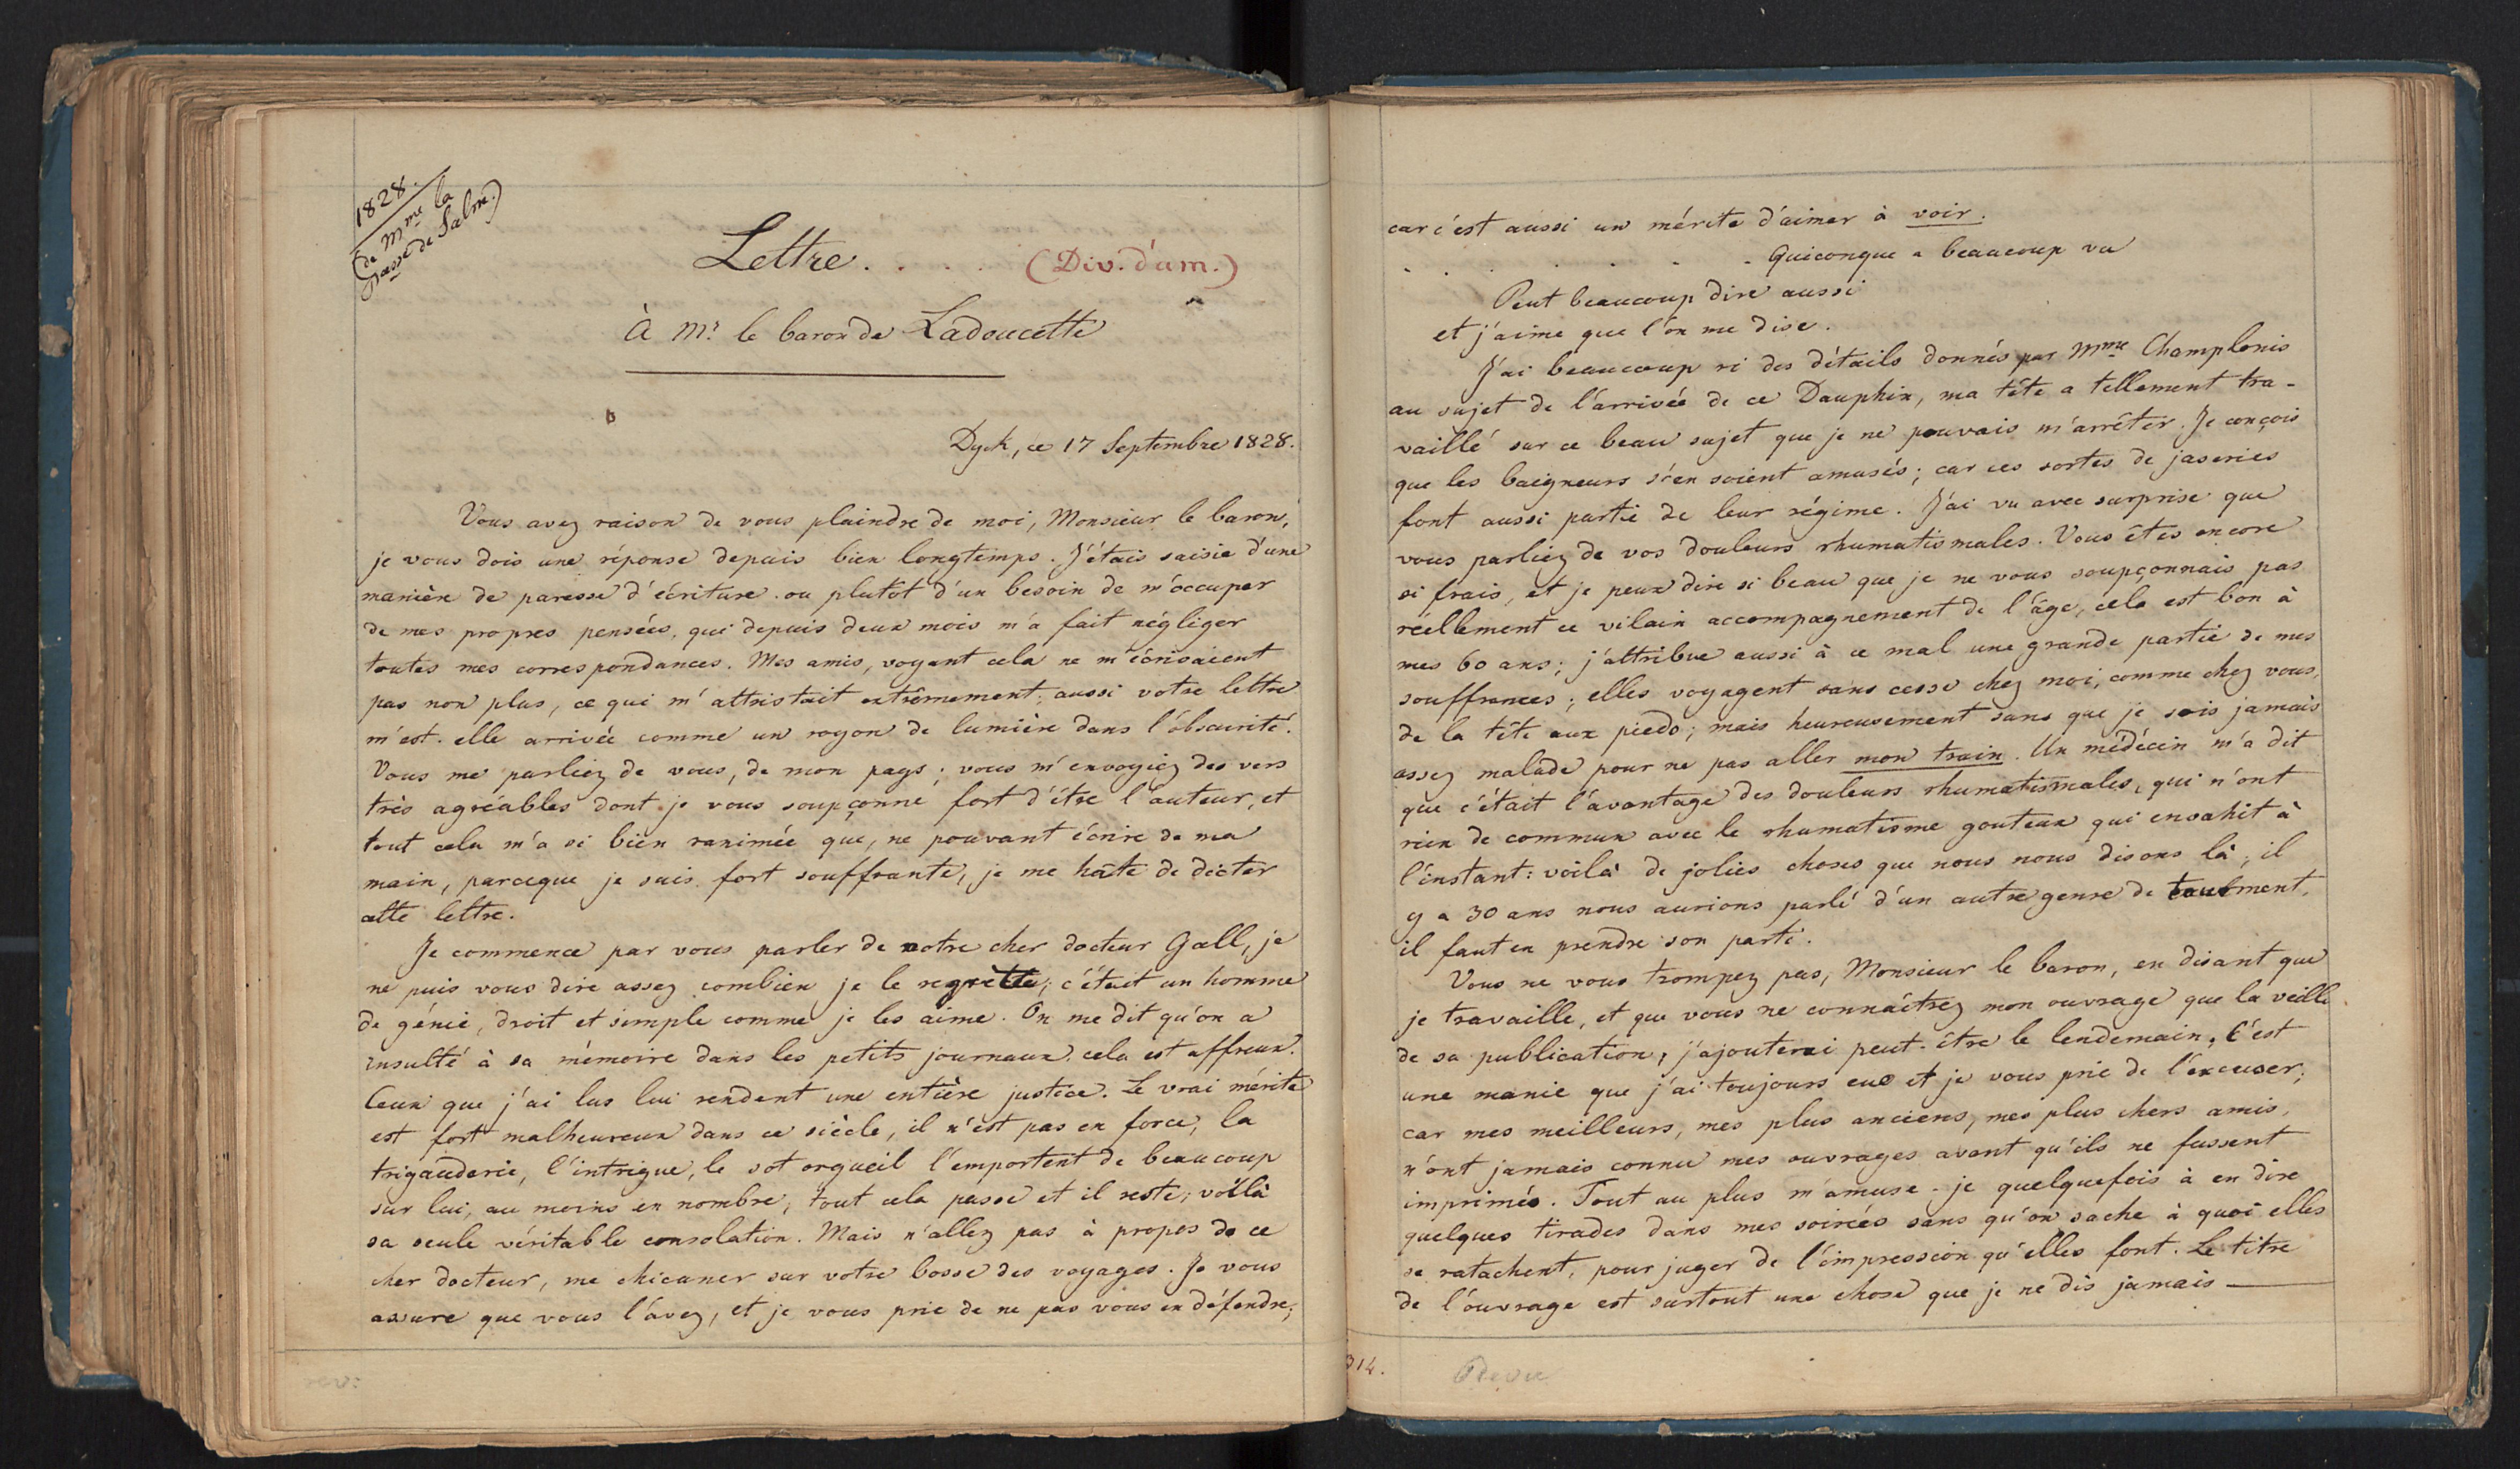 1828.
(de Mme la
Psse de Salm.)
Lettre. . . . (Div. d'am.)
À Mr. le baron de Ladoucette
Dyck, ce 17 Septembre 1828.
Vous avez raison de vous plaindre de moi, Monsieur le baron,
je vous dois une réponse depuis bien longtemps. J'étais saisie d'une
manière de paresse d'écriture. ou plutôt d'un besoin de m'occuper
de mes propres pensées, qui depuis deux mois m'a fait négliger
toutes mes correspondances. Mes amis, voyant cela ne m'écrivaient
pas non plus, ce qui m'attristait extrêmement; aussi votre lettre
m'est-elle arrivée comme un rayon de lumière dans l'obscurité.
Vous me parliez de vous, de mon pays; vous m'envoyiez des vers
très agréables dont je vous soupçonne fort d'être l'auteur, et
tout cela m'a si bien ranimée que, ne pouvant écrire de ma
main, parceque je suis fort souffrante, je me hâte de dicter
cette lettre.
Je commence par vous parler de notre cher docteur Gall, je
ne puis vous dire assez combien je le regrette; c'était un homme
de génie, droit et simple comme je les aime. On me dit qu'on a
insulté à sa mémoire dans les petits journaux. cela est affreux.
Ceux que j'ai lus lui rendent une entière justice. Le vrai mérite
est fort malheureux dans ce siècle, il n'est pas en force, la
trigauderie, l'intrigue, le sot orgueil l'emportent de beaucoup
sur lui, au moins en nombre, tout cela passe et il reste; voilà
sa seule véritable consolation. Mais n'allez pas à propos de ce
cher docteur, me chicaner sur votre bosse des voyages. Je vous
assure que vous l'avez, et je vous prie de ne pas vous en défendre;
rev:
car c'est aussi un mérite d'aimer à voir.
. . . . . . Quiconque a beaucoup vu
Peut beaucoup dire aussi
et j'aime que l'on me dise.
J'ai beaucoup ri des détails donnés par Mme Champlonis
au sujet de l'arrivée de ce Dauphin, ma tête a tellement tra-
vaillé sur ce beau sujet que je ne pouvais m'arrêter. Je conçois
que les baigneurs s'en soient amusés; car ces sortes de jaseries
font aussi partie de leur régime. J'ai vu avec surprise que
vous parliez de vos douleurs rhumatismales. Vous êtes encore
si frais, et je peux dire si beau que je ne vous soupçonnais pas
réellement ce vilain accompagnement de l'âge, cela est bon à
mes 60 ans; j'attribue aussi à ce mal une grande partie de mes
souffrances; elles voyagent sans cesse chez moi, comme chez vous,
de la tête aux pieds; mais heureusement sans que je sois jamais
assez malade pour ne pas aller mon train. Un médécin m'a dit
que c'était l'avantage des douleurs rhumatismales, qui n'ont
rien de commun avec le rhumatisme gouteux qui envahit à
l'instant: voilà de jolies choses que nous nous disons là; il
y a 30 ans nous aurions parlé d'un autre genre de tourment,
il faut en prendre son parti.
Vous ne vous trompez pas, Monsieur le baron, en disant que
je travaille, et que vous ne connaîtrez mon ouvrage que la veille
de sa publication, j'ajouterai peut-être le lendemain. C'est
une manie que j'ai toujours eue et je vous prie de l'excuser;
car mes meilleurs, mes plus anciens, mes plus chers amis,
n'ont jamais connu mes ouvrages avant qu'ils ne fussent
imprimés. Tout au plus m'amuse-je quelquefois à en dire
quelques tirades dans mes soirées sans qu'on sache à quoi elles
se ratachent, pour juger de l'impression qu'elles font. Le titre
de l'ouvrage est surtout une chose que je ne dis jamais —
314.
Revu